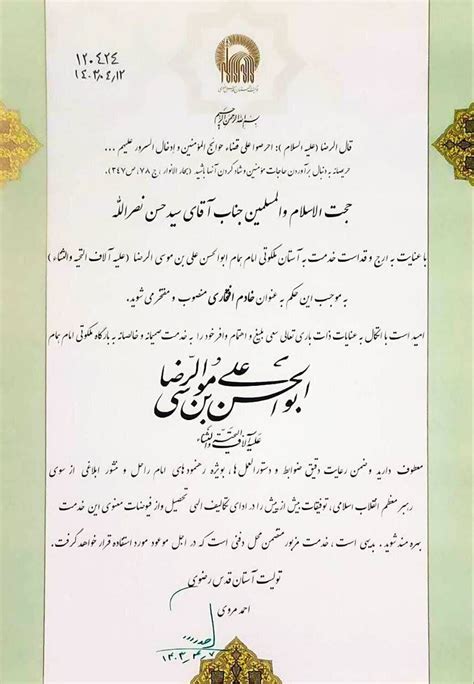 ۱۲۰۴۲۴
۱۴۰۳،۰۴،۱۲
بسم الله الرحمن الرحیم
قال الرضا (علیه السلام): احرصوا علی قضاء حوائج المؤمنین و إدخال السرور علیهم ...
حریصانه به دنبال برآوردن حاجات مؤمنین و شاد کردن آنها باشید (بحار الانوار، ج ۷۸، ص ۳۴۷).
حجت الاسلام والمسلمین جناب آقای سید حسن نصرالله
با عنایت به ارج و قداست خدمت به آستان ملکوتی امام همام ابوالحسن علی بن موسی الرضا (علیه آلاف التحیه والثناء)
به موجب این حکم به عنوان خادم افتخاری منصوب و مفتخر می شوید.
امید است با اتکال به عنایات ذات باری تعالی سعی بلیغ و اهتمام وافر خود را به خدمت صمیمانه و خالصانه به بارگاه ملکوتی امام همام
ابوالحسن علی بن موسی الرضا
علیه آلاف التحیة والثناء
معطوف دارید و ضمن رعایت دقیق ضوابط و دستورالعمل ها، بویژه رهنمودهای امام راحل و منشور ابلاغی از سوی
رهبر معظم انقلاب اسلامی، توفیقات بیش از پیش را در ادای تکالیف الهی تحصیل و از فیوضات معنوی این خدمت
بهره مند شوید. بدیهی است، خدمت مزبور متضمن محل دفنی است که در اجل موعود مورد استفاده قرار خواهد گرفت.
تولیت آستان قدس رضوی
احمد مروی
۱۴۰۳،۴،۷